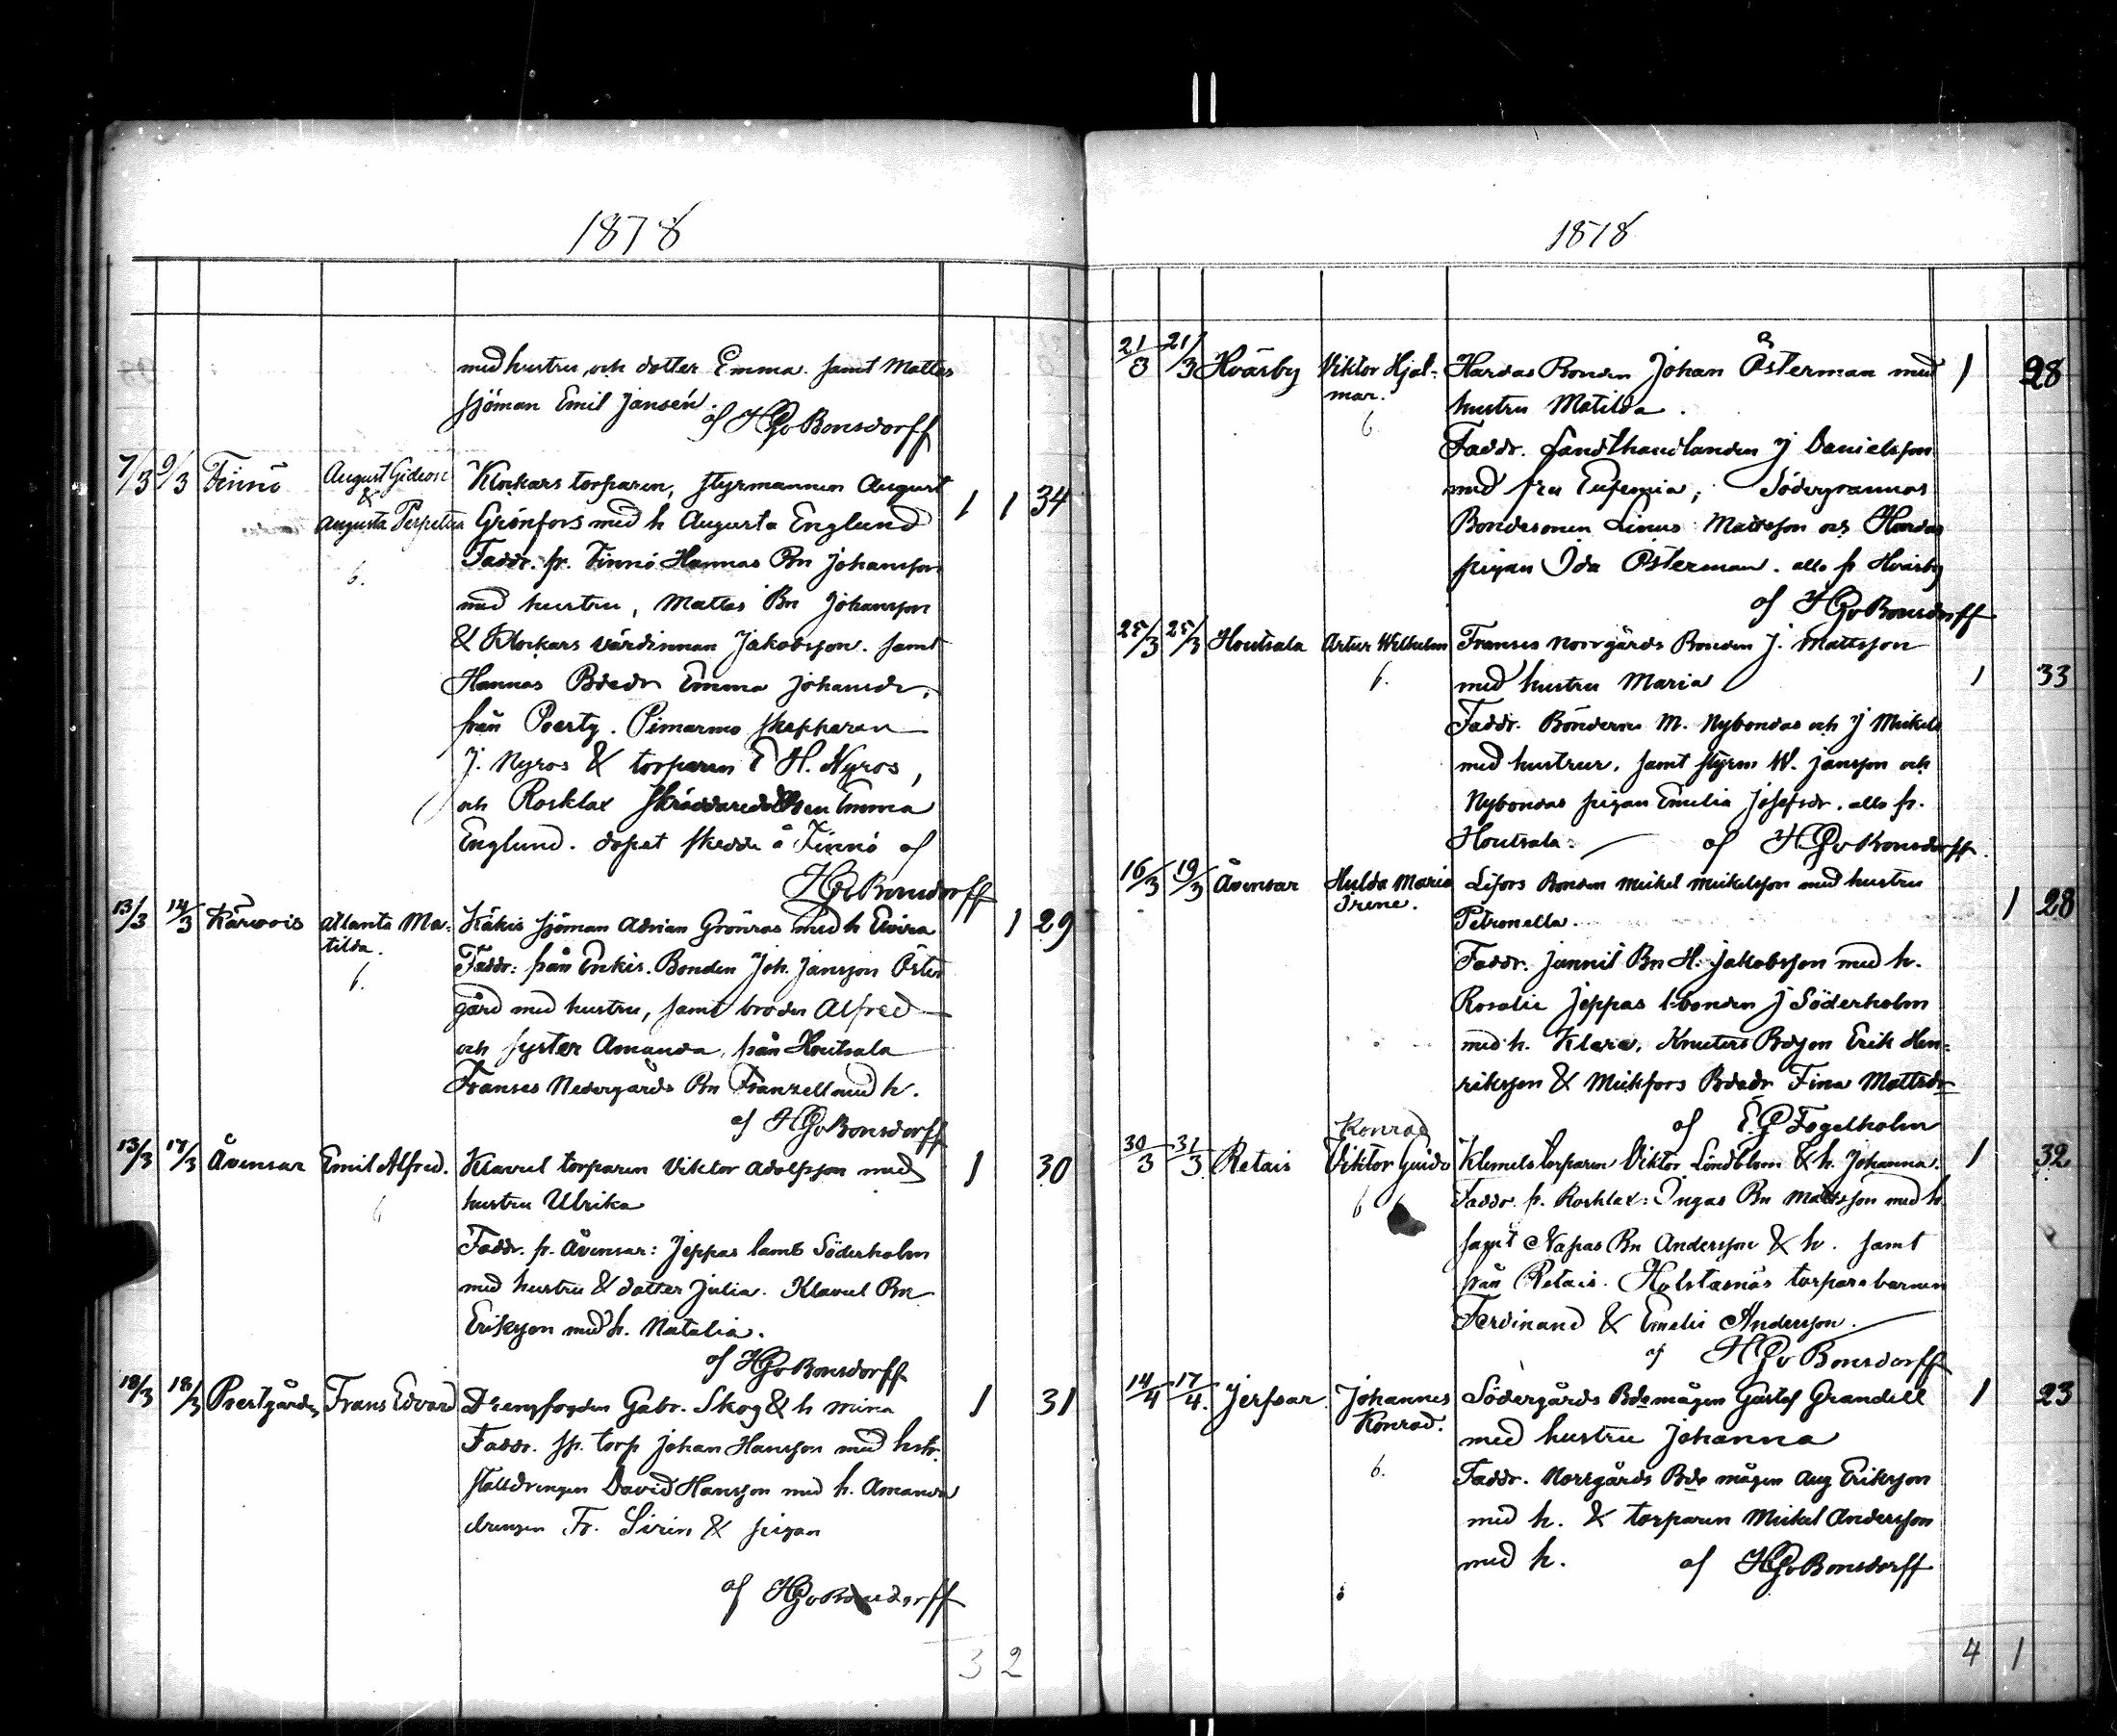 1878
med hustru, och dotter Emma samt Mattes
sjöman Emil Jansén.
af HGvBonsdorff
7/3 9/3 Finnö August Gideon Klockars torparen, styrmannen August 1 1 34
&
Augusta Perpetua Grönfors med h Augusta Englund
6. Faddr. fr. Finnö Hannas Bn Johansson
med hustru, Mattas Bn Johansson
& Klockars värdinnan Jakobsson. samt
Hannas Bdedr Emma Johansdr,
från Poerty. Pimarmo skepparen
J. Nyros & torparen E H. Nyros,
och Rosklax skräddaredottren Emma
Englund. dopet skedde å Finnö af
HGvBonsdorff
13/3 14/3 Kärwois Atlanta Ma- Käkis sjöman Adrian Grönros med h Elvira 1 29
tilda. Faddr: från Enkis. Bonden Joh. Jansson Öster
6. gård med hustru, samt broder Alfred
och syster Amanda, från Houtsala
Franses Nedergårds Bn Franzell med h.
af HGvBonsdorff
13/3 17/3 Åvensar Emil Alfred. Klavul torparen Viktor Adolfsson med 1 30
6 hustru Ulrika
Faddr. fr. Åvensar: Jeppas lamb Söderholm
med hustru & dotter Julia. Klavul Bn
Eriksson med h. Natalia.
af HGvBonsdorff
18/3 18/3 Prestgården Frans Edvard Drengfogden Gabr. Skog & h Mina 1 31
Faddr. sp. torp Johan Hansson med hstr.
stalldrengen David Hansson med h. Amanda
drengen Fr. Sirén & pigan
af HGvBonsdorff
3 2
1878
21/3 21/3 Hväsby Viktor Hjal- Hardas Bonden Johan Österman med 1 28
mar. hustru Matilda.
6 Faddr. Landthandlanden J Danielsson
med fru Eufemia; Södergrannas
Bondesonen Linus Mattsson och Hardas
pigan Ida Österman. alla fr Hväsby
af HGvBonsdorff
25/3 25/3 Houtsala Artur Wilhelm Franses Norrgårds Bonden J. Mattsson
6. med hustru Maria 1 33
Faddr. Bönderne M. Nybondas och J Mickels
med hustrur. samt styrm W. Jansson och
Nybondas pigan Emilia Josefsdr. alla fr.
Houtsala. af HGvBonsdorff
16/3 19/3 Åvensar Hulda Maria Lifors Bonden Mickel Mickelsson med hustru
Irene. Petronella. 1 28
Faddr. Junnil Bn H. Jakobsson med h.
Rosalie Jeppas l.bonden J Söderholm
med h. Klara. Knuters Bdson Erik Hen-
riksson & Mickfors Bdedr Fina Mattsdr
af E.G Fogelholm
Konrad
30/3 31/3 Retais Viktor Guido Klemels torparen Viktor Lindblom & h. Johanna. 1 32
6 6 Faddr. fr. Rosklax: Ingas Bn Mattsson med h.
samt Napas Bn Andersson & h. samt
från Retais. Holstasnäs torparebarnen
Ferdinand & Emelie Andersson.
af HGv Bonsdorff
14/4 17/4 Jerfsar Johannes Södergårds Bdemågen Gustaf Grandell 1 23
Konrad. med hustru Johanna
6. Faddr. Norrgårds Bde mågen Aug Eriksson
med h. & torparen Mickel Andersson
med h. af HGvBonsdorff
4 1